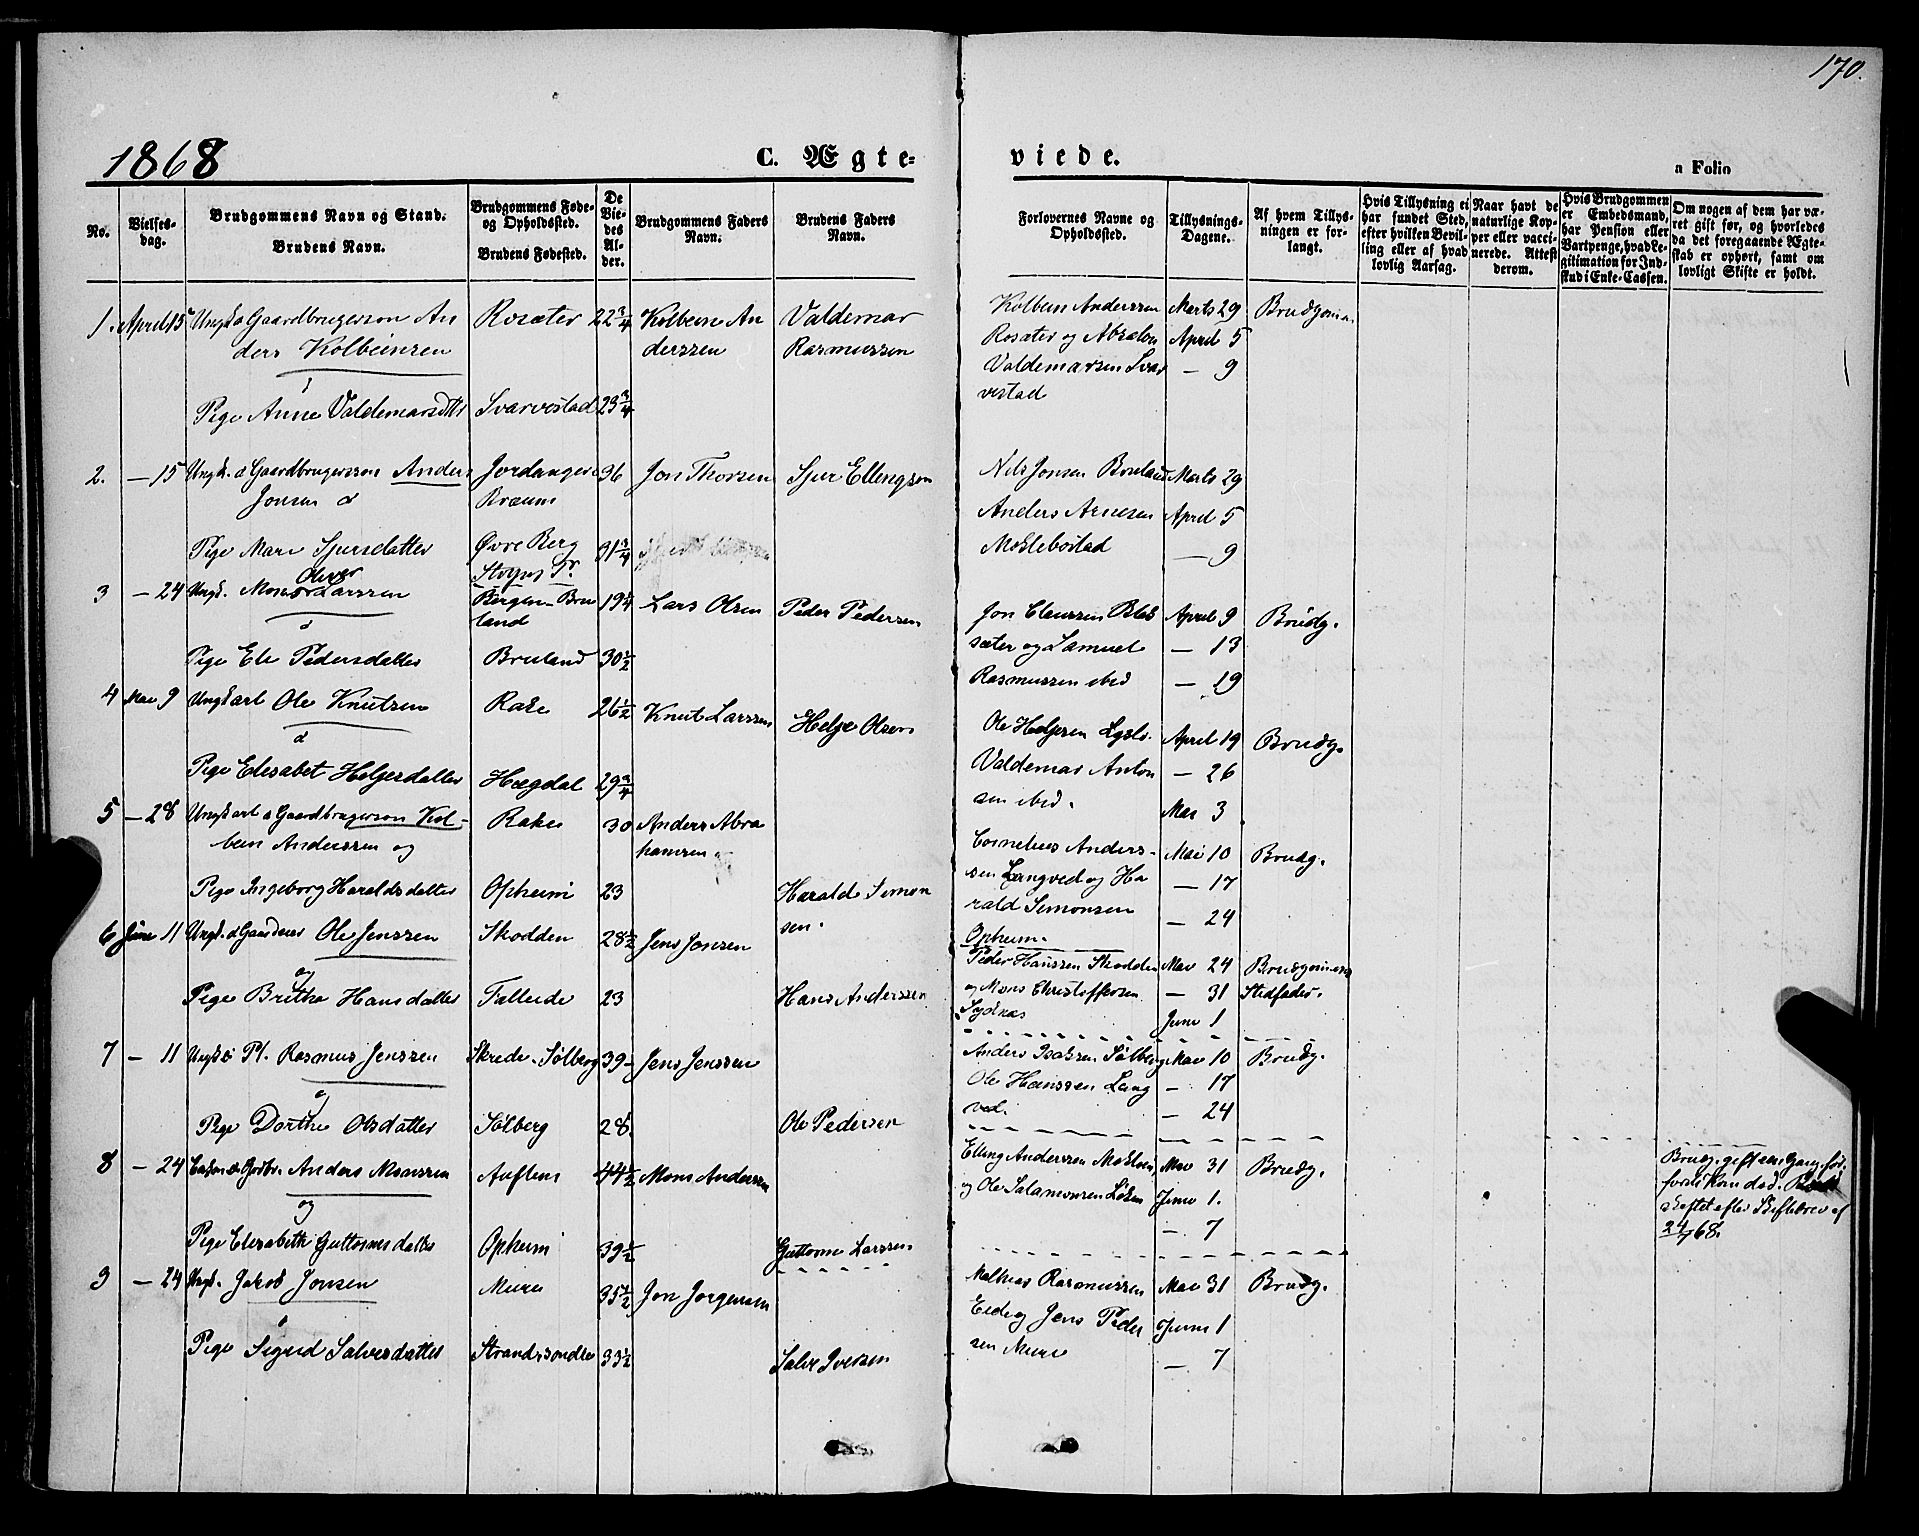 170.
1868
C. Ægteviede.
a Folio
No.
Vielsesdag.
Brudgommens Navn og Stand.
Brudens Navn.
Brudgommens Føde- og Opholdssted.
Brudens Fødested.
De Viedes Alder.
Brudgommens Faders Navn.
Brudens Faders Navn.
Forlovernes Navne og Opholdssted.
Tillysnings-Dagene.
Af hvem Tillysningen er forlangt.
Hvis Tillysning ei har fundet Sted, efter hvilken Bevilling eller af hvad lovlig Aarsag.
Naar havt de naturlige Kopper eller vaccinerede. Attest derom.
Hvis Brudgommen er Embedsmand, har Pension eller Vartpenge, hvad Legitimation for Indskud i Enke-Cassen.
Om nogen af dem har været gift før, og hvorledes da det foregaaende Ægteskab er ophørt, samt om lovligt Skifte er holdt.
1. April 15 Ungk. & Gaardbrugerson An Rosæter 22 3/4 Kolbein An Valdemar Kolbein Anderssen Marts 29 Brudgom.
ders Kolbeinsen derssen Rasmussen Rosæter og Absalon April 5
Valdemarsen Svar — 9
Pige Anne Valdemarsdtter Svarvestad 23 3/4 vestad
2. — 15 Ungk. & Gaardbrugersson Anders Jordanger 36 Jon Thorsen Sjur Ellingsen Nils Jonsen Bruland Marts 29
Jonsen & Anders Arnesen April 5
Pige Mari Sjursdatter Øvre Berg 31 3/4 Moklebostad — 9
Stryns Pr.
3 — 24 Ungk. Mons Larssen Bergen Bru 19 1/4 Lars Olsen Peder Pedersen Jon Claussen Bles April 9 Brudg.
Oliver land sæter og Samuel — 13
Pige Eli Pedersdatter Bruland 30 1/2 Rasmussen ibid — 19
4 Mai 9 Ungkarl Ole Knutsen Rake 26 1/2 Knut Larssen Helje Olsen Ole Heljesen April 19 Brudg.
& Valdemar Anton — 26
Pige Elisabet Heljesdatter Hægdal 29 3/4 sen ibid. Mai 3
5 — 28 Ungkarl & Gaardbrugerson Kol- Rake 30 Anders Abra Cornelius Anders- Mai 10 Brudg.
bein Anderssen og hamsen. sen Langved og Ha — 17
Pige Ingeborg Haraldsdatter Opheim 23 Harald Simon rald Simonsen — 24
sen. Opheim.
6 Juni 11 Ungk. & Ole Jenssen Skodden 28 1/2 Jens Jonsen Peder Hanssen Skodden Mai 24 Brudgommens
og og Mons Christoffersen — 31 Stedfader.
Pige Brithe Hansdatter Falleide 23 Hans Anderssen Sydnæs Juni 1
7 — 11 Rasmus Jenssen Skrede Sølberg 39 Jens Jenssen Anders Isaksen Sølberg Mai 10 Brudg.
og Ole Hanssen Lang — 17
Pige Dorthe Olsdatter Sølberg 28. Ole Pedersen ved. — 24
8 — 24 Anders Monssen Auflem 44 1/2 Mons Anderssen Elling Anderssen Mai 31 Brudg. Brudg. gift en Gang før,
og og Ole Salamonsen Løken Juni 1. Kon død.
Pige Elisabeth Guttormsdatter Opheim 39 1/2 Guttorm Larssen — 7 skiftet efter Skiftebrev af
24/4 68.
9 — 24 Ungk. Jakob Jonsen Muri 35 1/2 Jon Jørgensen Mathias Rasmussen Mai 31 Brudg.
Eide og Jens Peder Juni 1
Pige Sigrid Salvesdatter 33 1/2 Iversen sen Muri — 7